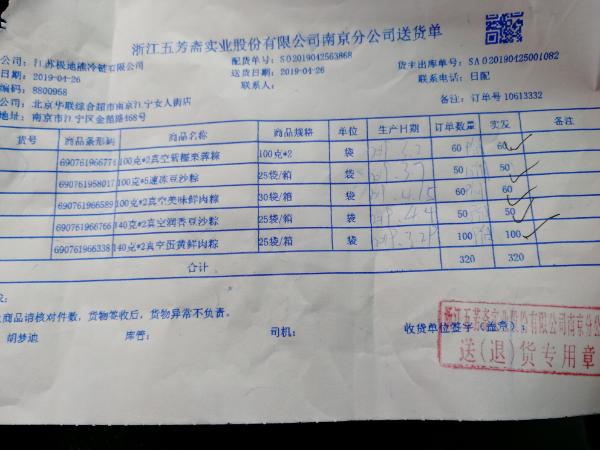 浙江五芳斋实业股份有限公司南京分公司送货单
公司: 江苏极地熊冷链有限公司 配货单号: SO2019042563868 货主出库单号: SA020190425001082
日期: 2019-04-26 送货日期: 2019-04-26 联系电话: 日配
码: 8800968 联系人:
公司: 北京华联综合超市南京江宁女人街店 备注: 订单号10613332
地址: 南京市江宁区金箔路468号
货号 商品条形码 商品名称 商品规格 单位 生产日期 订单数量 实发 备注
690761966774 100克*2真空紫糯栗蓉粽 100克*2 袋 60 60
690761958017 100克*5速冻豆沙粽 25袋/箱 袋 50 50
690761966589 100克*2真空美味鲜肉粽 30袋/箱 袋 19.4.15 60 60
690761966766 140克*2真空润香豆沙粽 25袋/箱 袋 19.4.4 50 50
690761966338 140克*2真空蛋黄鲜肉粽 25袋/箱 袋 100 100
合计 320 320
商品请核对件数, 货物签收后, 货物异常不负责。
胡梦迪 库管: 司机: 收货单位签字(盖章):
浙江五芳斋实业股份有限公司南京分公
送(退)货专用章